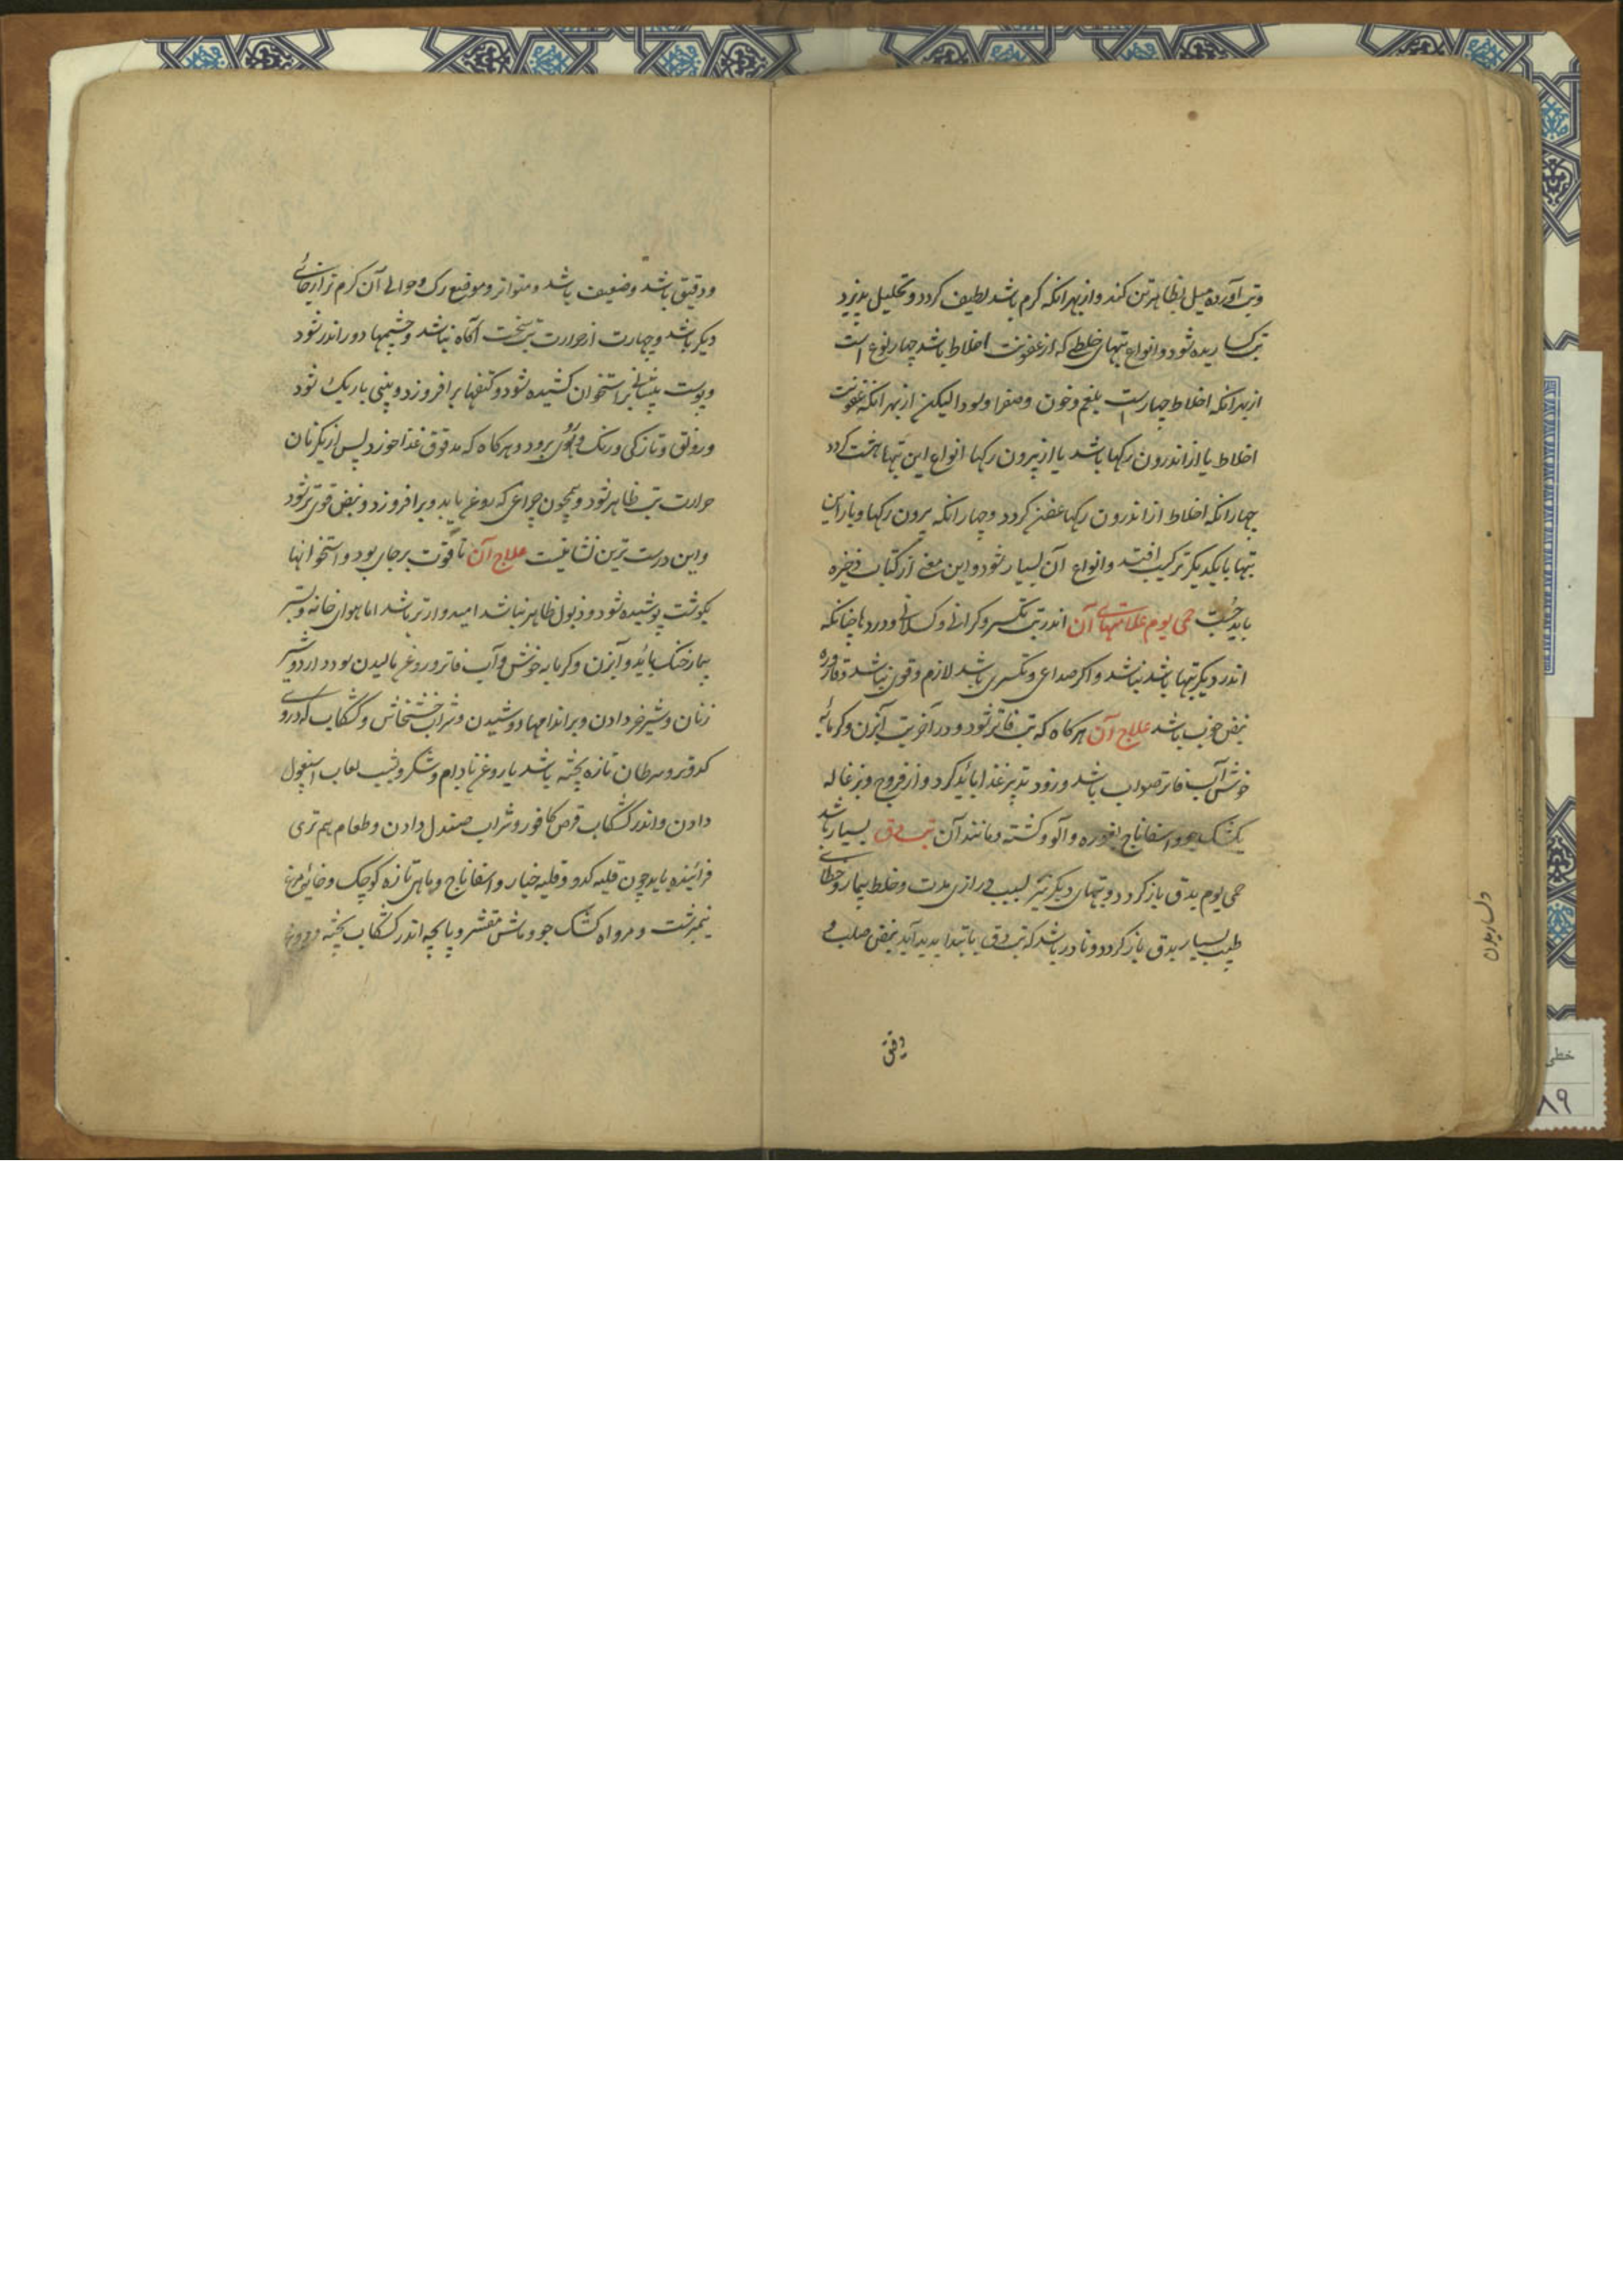 وتب آورده میل بظاهر تن کند و از بهر انکه کرم باشد لطیف کردد و تحلیل پذیرد
تب کساریده شود و انواع تبهای خلطی که از عفونت اخلاط باشد چهار نوع است
از بهر انکه اخلاط چهارست بلغم و خون و صفرا و سودا لیکن از بهر انکه عفونت
اخلاط یا از اندرون رکها باشد یا از بیرون رکها انواع این تبها هشت کردد
چهار انکه اخلاط از اندرون رکها عفن کردد و چهار انکه بیرون رکها و باز این
تبها با یکدیکر ترکیب افتد و انواع آن بسیار شود و این معنی از کتاب ذخیره
باید جست حمی یوم علامتهای آن اندر تب تکسر و کرانی و کسلانی و دردها چنانکه
اندر دیکر تبها باشد نباشد و اکر صداعی و تکسری باشد لازم و قوی نباشد و قاروره
نبض خوب باشد علاج آن هرکاه که تب فاتر شود و در آخر تب آبزن و کرمابه
خوش آب فاتر صواب باشد و زود تدبیر غذا باید کرد و از فروج و بزغاله
بکشک جو و اسفاناج و غوره و آلو و کشته و مانند آن تب دق بسیار باشد
حمی یوم بدق باز کردد و تبهای دیکر نیز بسبب درازی مدت و خلط بیمار و خطای
طبیب بسیار بدق باز کردد و نادر باشد که تب دق بابتدا پدید آید نبض صلب
دقیق
و دقیق باشد و ضعیف باشد و متواتر و موضع رک و حوالی آن کرم تر از جائی
دیکر باشد و بیمار از حرارت تب سخت آکاه نباشد و چشمها دور اندر شود
و پوست پیشانی بر استخوان کشیده شود و کتفها برافروزد و بینی باریک شود
و رونق و تازکی و رنک و روی برود و هرکاه که مدقوق غذا خورد پس از یکزمان
حرارت تب ظاهر شود و همچون چراغی که روغن یابد و برافروزد و نبض قوی تر شود
و این درست ترین نشانیست علاج آن تا قوت بر جای بود و استخوانها
بکوشت پوشیده شود و ذبول ظاهر نباشد امیدوارتر باشد اما هوای خانه و بستر
بیمار خنک باید و آبزن و کرمابه خوش و آب فاتر و روغن مالیدن سود دارد و شیر
زنان و شیر خر دادن و بر اندامها دوشیدن و شراب خشخاش و کشکاب که در وی
کدو و سرطان تازه پخته باشد با روغن بادام و شکر و لعاب اسبغول
دادن و اندر کشکاب قرص کافور و شراب صندل دادن و طعام هم تری
فزاینده باید چون قلیه کدو و قلیه خیار و اسفاناج و ماهی تازه کوچک و خایه مرغ
نیمبرشت و مزوره کشک جو و ماش مقشر و پاچه اندر کشکاب پخته و دوغ
خطی
۸۹